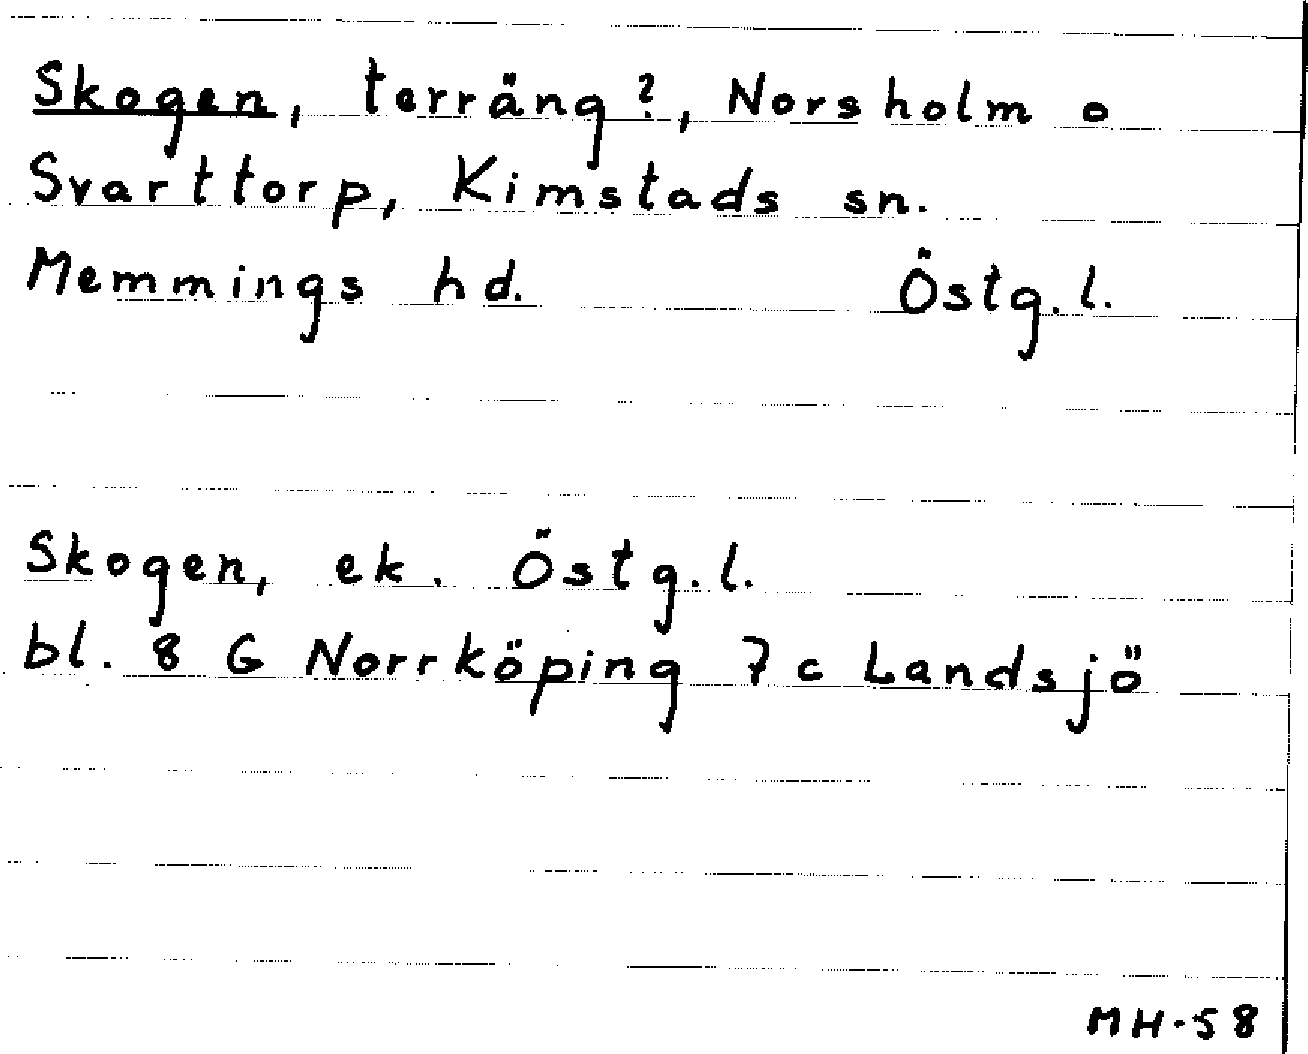 Skogen, terräng?, Norsholm o
Svarttorp, Kimstads sn.
Memmings hd. Östg.l.
Skogen, ek. Östg.l.
bl. 8 G Norrköping 7 c Landsjö
MH-58